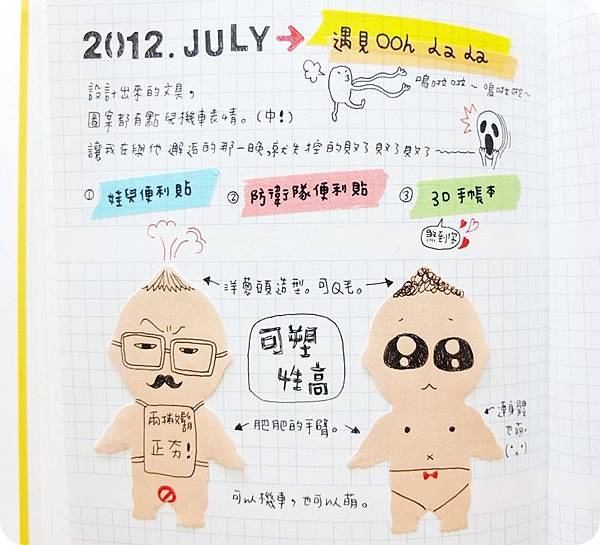 2012. JULY → 遇見OOh La La
嗚啦啦~嗚啦啦~
設計出來的文具,
圖案都有點兒機車表情。(中!)
讓我在與他邂逅的那一晚,就失控的敗了敗了敗了~
① 娃兒便利貼
② 防衛隊便利貼
③ 3D手帳本
煞到你
洋蔥頭造型。可Q毛。
可塑
性高
兩撇鬍
正夯!
肥肥的手臂。
連身體
也萌。
可以機車,也可以萌。